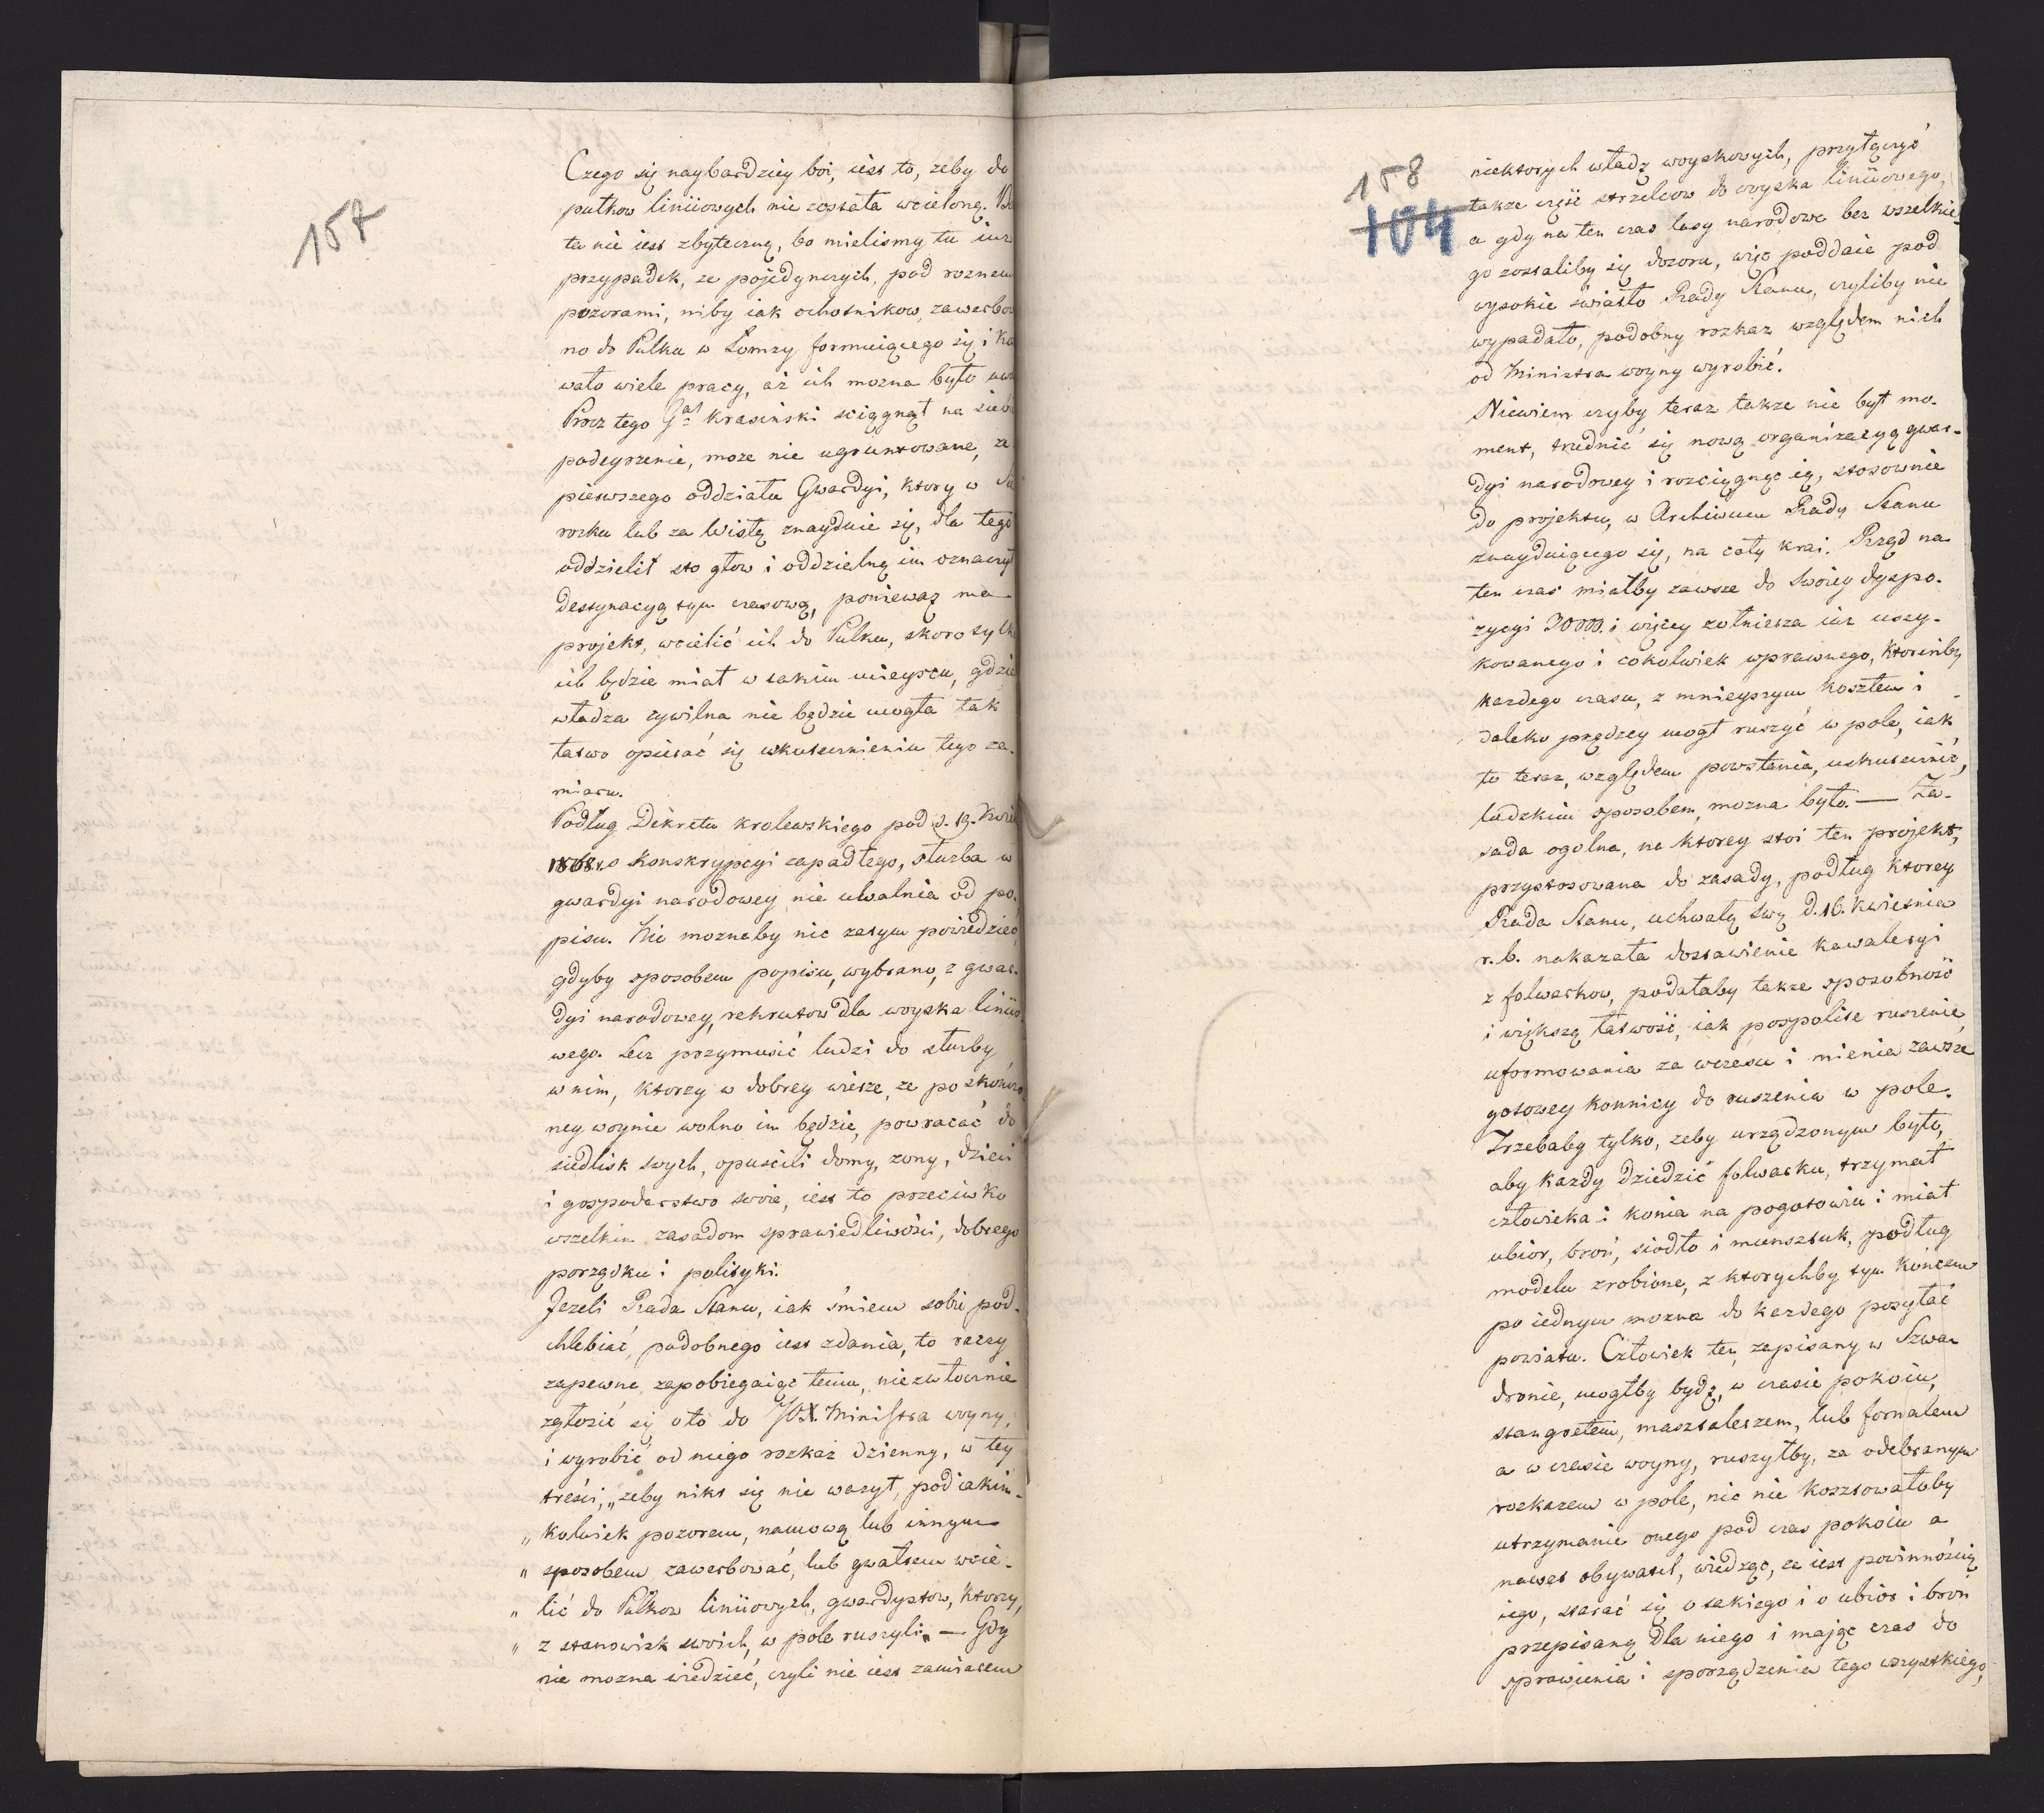 157
Czego się naybardziey boi, iest to, zeby do
pułkow liniiowych nie została wcieloną.
ta nie iest zbyteczną, bo mielismy tu iuz
przypadek, ze pojedynczych, pod roznemi
pozorami, niby iak ochotnikow, zawerbo
no do Pulku w Łomzy formuiącego się i ko
wało wiele pracy, aż ich mozna było
Procz tego Gał Krasinski sciągnął na siebie
podeyrzenie, moze nie ugruntowane, ze
pierwszego oddziału Gwardyi, ktory w
rocku lub za Wisłą znayduie się, dla tego
oddzielił sto głow i oddzielną im oznaczył
destynacyą tym czasową, ponieważ ma
projekt, wcielić ich do Pulku, skoro tylko
ich będzie miał w takim mieyscu, gdzie
władza cywilna nie będzie mogła tak
łatwo opierać się uskutecznieniu tego za-
miaru.
Podług Dekretu krolewskiego pod d. 19. Kwie
1808. o Konskrypcyi zapadłego, służba w
gwardyi narodowey nie uwalnia od po-
pisu. Nic moznaby nic zatym powiedziec,
gdyby sposobem popisu, wybrano, z gwar-
dyi narodowey, rekrutow dla woyska liniio-
wego. Lecz przymusić ludzi do służby
w nim, ktorzy w dobrey wierze, ze po skończo-
ney woynie wolno im będzie, powracać do
siedlisk swych, opuscili domy, zony, dzieci
i gospodarstwo swoie, iest to przeciwko
wszelkim zasadom sprawiedliwości, dobrego
porządku i polityki.
Jezeli Rada Stanu, iak śmiem sobie pod-
chlebiać, podobnego iest zdania, to raczy
zapewne, zapobiegaiąc temu, niezwłocznie
zgłosić się oto do JOX. Ministra woyny,
i wyrobić od niego rozkaz dzienny, w tey
treści, „zeby nikt się nie wazył, pod iakim-
„ kolwiek pozorem, namową lub innym
„ sposobem zawerbować, lub gwałtem wcie-
„ lić do Pułkow liniiowych, gwardystow, ktorzy,
„ z stanowisk swoich, w pole ruszyli„ — Gdy
nie mozna wiedzieć, czyli nie iest zamiarem
158
104
niektorych władz woyskowych, przyłączyć
także część strzelcow do woyska liniiowego,
a gdy na ten czas lasy narodowe bez wszelkie-
go zostaliby się dozoru, więc poddaie pod
wysokie swiatło Rady Stanu, czyliby nie
wypadało, podobny rozkaz względem nich
od Ministra woyny wyrobić.
Niewiem czyby teraz także nie był mo-
ment, trudnić się nową organizacyą gwar-
dyi narodowey i rozciągnąc ią, stosownie
do projektu, w Archiwum Rady Stanu
znayduiącego się, na cały krai. Rząd na
ten czas miałby zawsze do swoiey dyspo-
zycyi 30000. i więcey zołnierza iuz uszy-
kowanego i cokolwiek wprawnego, ktorinby
kazdego czasu, z mnieyszym kosztem i
daleko prędzey mogł ruszyć w pole, iak
to teraz, względem powstania, uskutecznić,
ludzkim sposobem, mozna było. — Za-
sada ogolna, na ktorey stoi ten projekt,
przystosowana do zasady, podług ktorey
Rada Stanu, uchwałą swą d. 16. kwietnia
r. b. nakazała dostawienie kawaleryi
z folwarkow, podałaby także sposobność
i większą łatwość, iak pospolite ruszenie
uformowania za wczesu i mienia zawsze
gotowey konnicy do ruszenia w pole.
Trzebaby tylko, zeby urządzonym było,
aby kazdy dziedzic folwarku, trzymał
człowieka i konia na pogotowiu i miał
ubior, broń, siodło i munsztuk, podług
modelu zrobione, z ktorychby tym końcem
po iednym mozna do kazdego posyłać
powiatu. Człowiek ten, zapisany w Szwa-
dronie, mogłby bydź, w czasie pokoiu,
stangretem, masztalerzem, lub fornalem
a w czasie woyny, ruszyłby, za odebranym
rozkazem w pole, nic nie kosztowałoby
utrzymanie onego pod czas pokoiu a
nawet obywatel, wiedząc, ze iest powinnością
iego, starać się o takiego i o ubior i broń
przepisaną dla niego i mając czas do
sprawienia i sporządzenia tego wszystkiego,